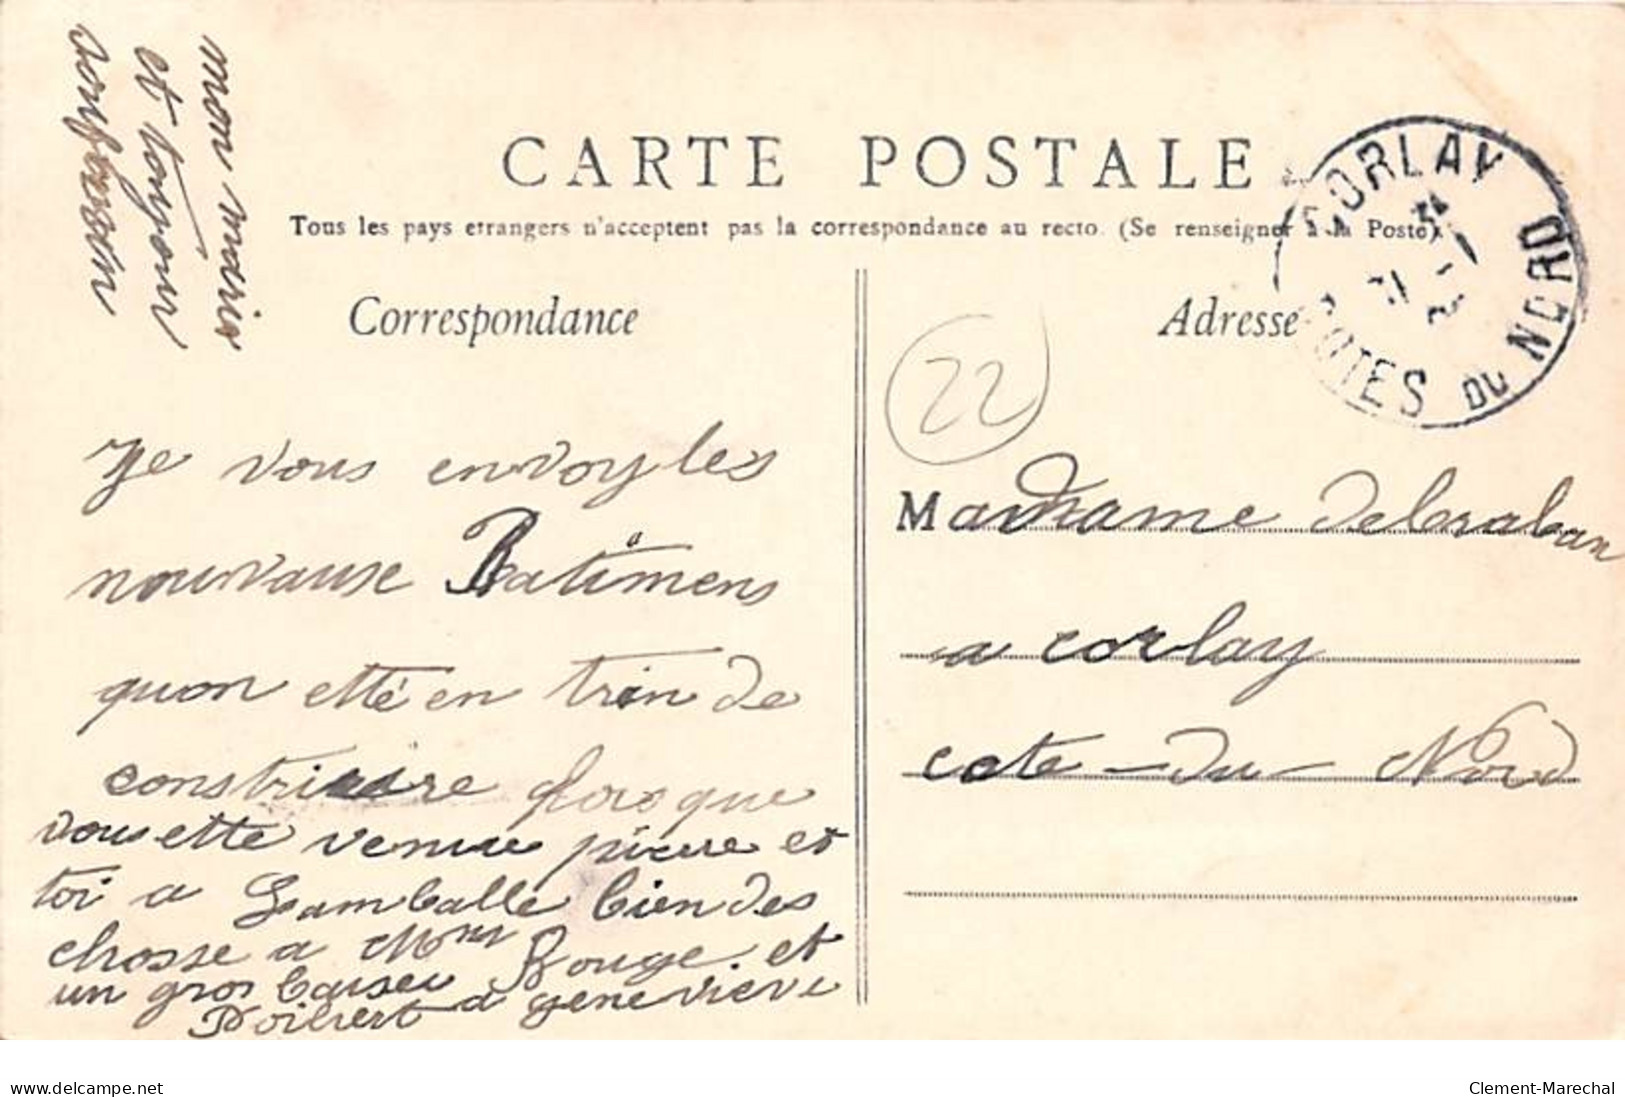 mon maris
et toujour
CARTE POSTALE
Tous les pays etrangers n'acceptent pas la correspondance au recto. (Se renseigner à la Poste).
CORLAY
COTES DU NORD
Correspondance
Adresse
22
Je vous envoy les
nouvause Batimens
quon etté en trin de
construire
vous ette venue pierre et
toi a Lamballe bien des
chosse a Mme Rouge et
un gros baiser a genevieve
Madame
a corlay
cote-du-Nord
www.delcampe.net
Clement-Marechal